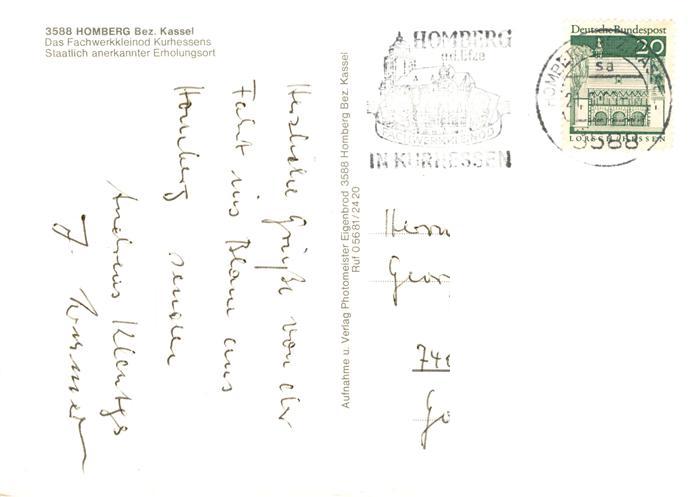 3588 HOMBERG Bez. Kassel
Das Fachwerkkleinod Kurhessens
Staatlich anerkannter Erholungsort
Herzliche Grüße von der
Fahrt ins Blaue aus
Homberg senden
Andreas
Aufnahme u. Verlag Photomeister Eigenbrod 3588 Homberg Bez. Kassel
Ruf 05681/2420
HOMBERG
FACHWERKKLEINOD
IN KURHESSEN
HOMBERG
3588
Deutsche Bundespost
20
LORSCH/HESSEN
Herrn
Geor
74